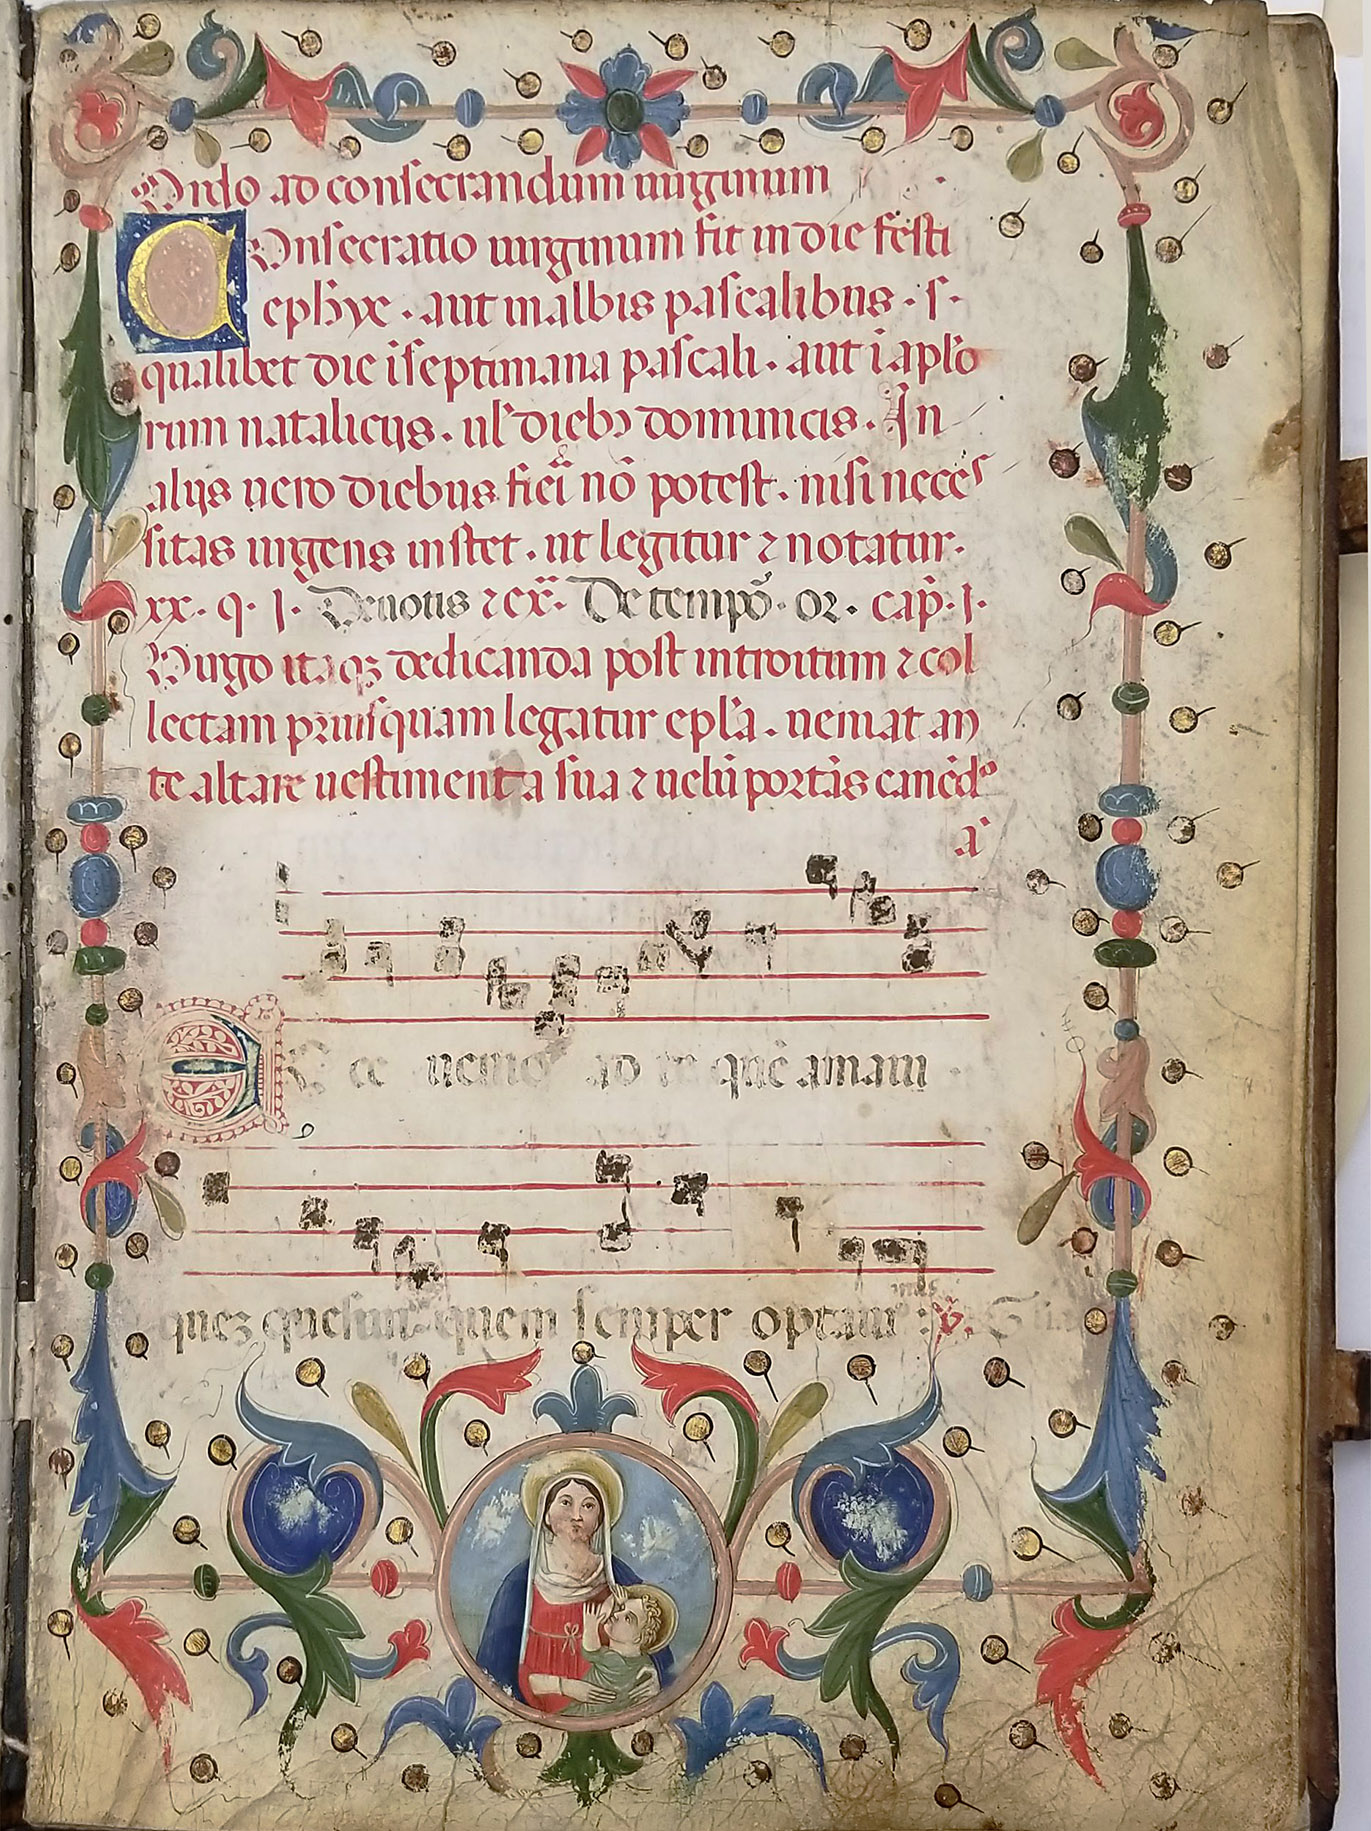 Ordo ad consecrandum uirginum
Consecratio uirginum fit in die festi
epħyę . aut in albis pascalibus . s .
qualibet die ī septimana pascali . aut ī apl̄o
rum nataliciis . ul̓ dieb; dominicis . In
aliis uero diebus fiēi nō potest . nisi neces
sitas urgens instet . ut legitur ⁊ notatur .
xx . q . I . De uotis ⁊ ex̄ . De tempō . or . cap̄ . I .
Virgo itaqꝫ dedicanda post introitum ⁊ col
lectam priusquam legatur epl̄a . ueniat an
te altare uestimenta sua ⁊ uelū portās canēdo
ā
Ecce uenio ad te quē amaui
quez quesiui quem semper optaui : ℣.